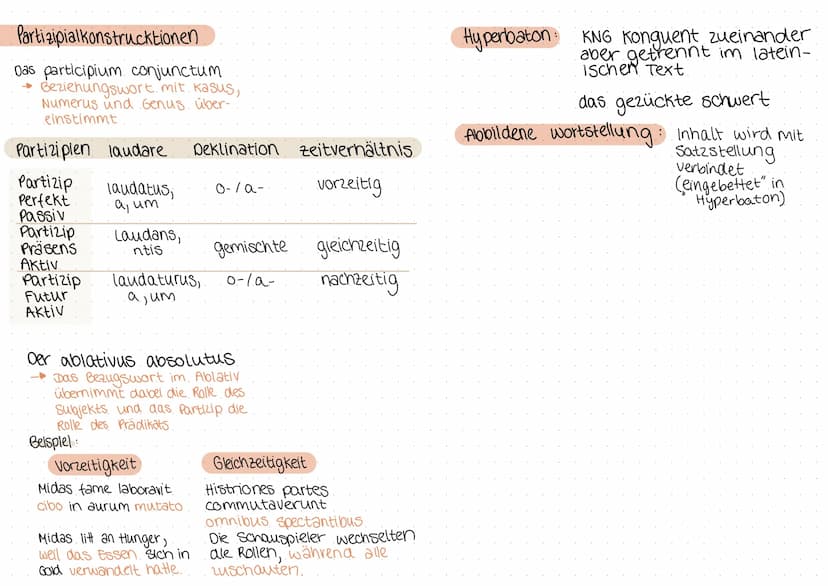 Partizipialkonstrucktionen
Das participium conjunctum
→ Beziehungswort mit Kasus,
Numerus und Genus über-
einstimmt
Partiziplen laudare Deklination zeitverhältnis
Partizip
Perfekt
Passiv
laudatus,
a, um
o-/a-
vorzeitig
Partizip
Präsens
Aktiv
Laudans,
ntis
gemischte
gleichzeitig
Partizip
Futur
Aktiv
laudaturus,
a, um
o-/a-
nachzeitig
Der ablativus absolutus
→ Das Bezugswort im Ablativ
übernimmt dabei die Rolle des
Subjekts und das Partizip die
Rolle des Prädikats
Beispiel:
Vorzeitigkeit
Midas fame laboravit
cibo in aurum mutato
Midas litt an Hunger,
weil das Essen sich in
Gold verwandelt hatte.
Gleichzeitigkeit
Histriones partes
commutaverunt
omnibus spectantibus
Die Schauspieler wechselten
die Rollen, während alle
zuschauten.
Hyperbaton:
KNG Konguent zueinander
aber getrennt im latein-
ischen Text
das gezückte schwert
Abbildene wortstellung:
Inhalt wird mit
Satzstellung
verbindet
(„eingebettet" in
Hyperbaton)